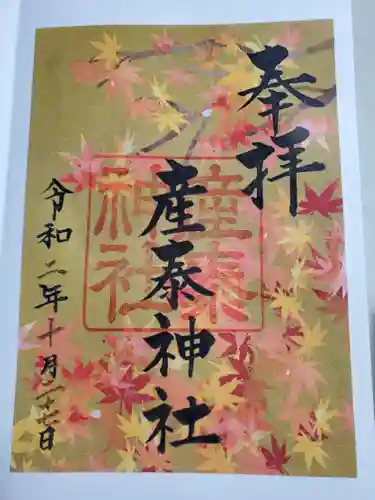 奉拝
産泰神社
産泰神社
令和二年十月二十七日